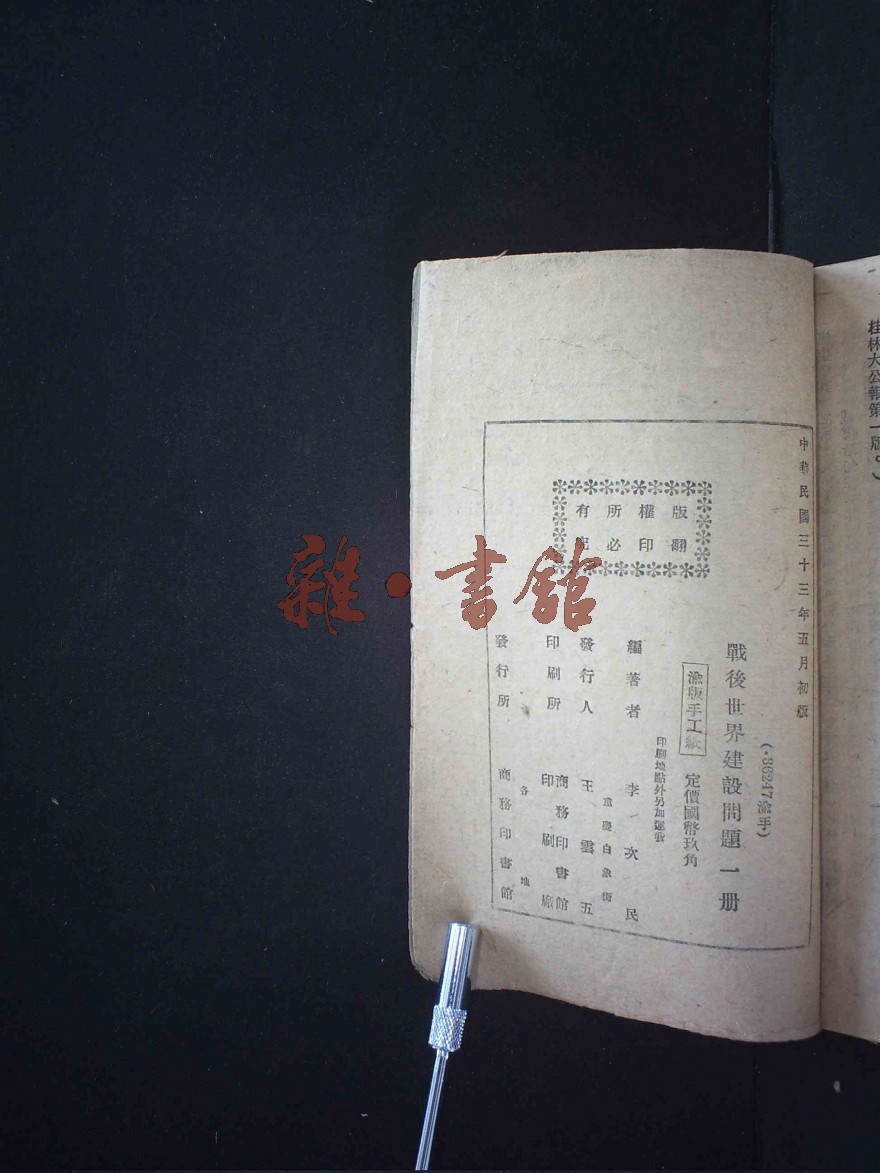 桂林大公報第一版。)
中華民國三十三年五月初版
(·86247渝手)
戰後世界建設問題一册
渝版手工紙
定價國幣玖角
印刷地點外另加運費
編著者 李次民
重慶白象街
發行人 王雲五
印刷所 商務印書館印刷廠
各地
發行所 商務印書館
版權所有
翻印必
雜·書館